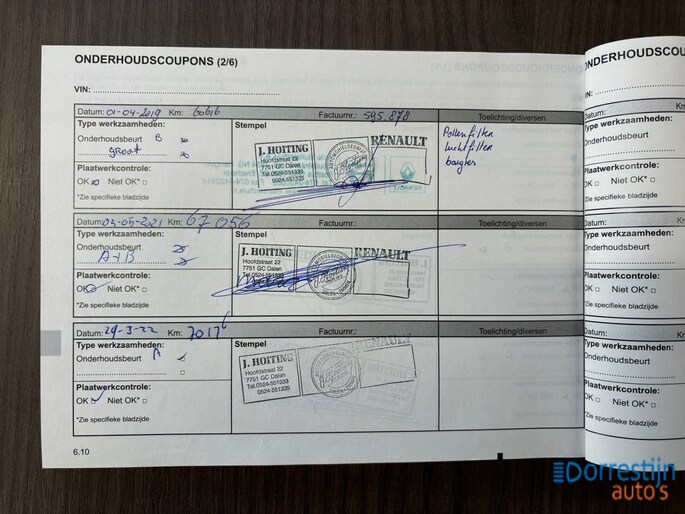 ONDERHOUDSCOUPONS (2/6)
VIN:
Datum: 01-04-2019 Km: 60616 Factuurnr.: 595.878 Toelichting/diversen
Type werkzaamheden:
Onderhoudsbeurt B
groot
Plaatwerkcontrole:
OK Niet OK*
*Zie specifieke bladzijde
Stempel
J. HOITING
Hoofdstraat 22
7751 GC Dalen
Tel.0524-551333
0524-551335
RENAULT
Pollenfilter
luchtfilter
bougies
Datum: 03-05-2021 Km: 67056 Factuurnr.: Toelichting/diversen
Type werkzaamheden:
Onderhoudsbeurt
A+B
Plaatwerkcontrole:
OK Niet OK*
*Zie specifieke bladzijde
Stempel
J. HOITING
Hoofdstraat 22
7751 GC Dalen
Tel.0524-551333
RENAULT
Datum: 29-3-22 Km: 70176 Factuurnr.: Toelichting/diversen
Type werkzaamheden:
Onderhoudsbeurt A
Plaatwerkcontrole:
OK Niet OK*
*Zie specifieke bladzijde
Stempel
J. HOITING
Hoofdstraat 22
7751 GC Dalen
Tel.0524-551333
0524-551335
RENAULT
6.10
ONDERHOUDSCOU
VIN:
Datum:
Type werkzaamhed
Onderhoudsbeurt
Plaatwerkcontrole:
OK Niet OK*
*Zie specifieke bladzijde
Datum:
Type werkzaamhede
Onderhoudsbeurt
Plaatwerkcontrole:
OK Niet OK*
*Zie specifieke bladzijde
Datum:
Type werkzaamheden
Onderhoudsbeurt
Plaatwerkcontrole:
OK Niet OK*
*Zie specifieke bladzijde
Dorrestijn
auto's